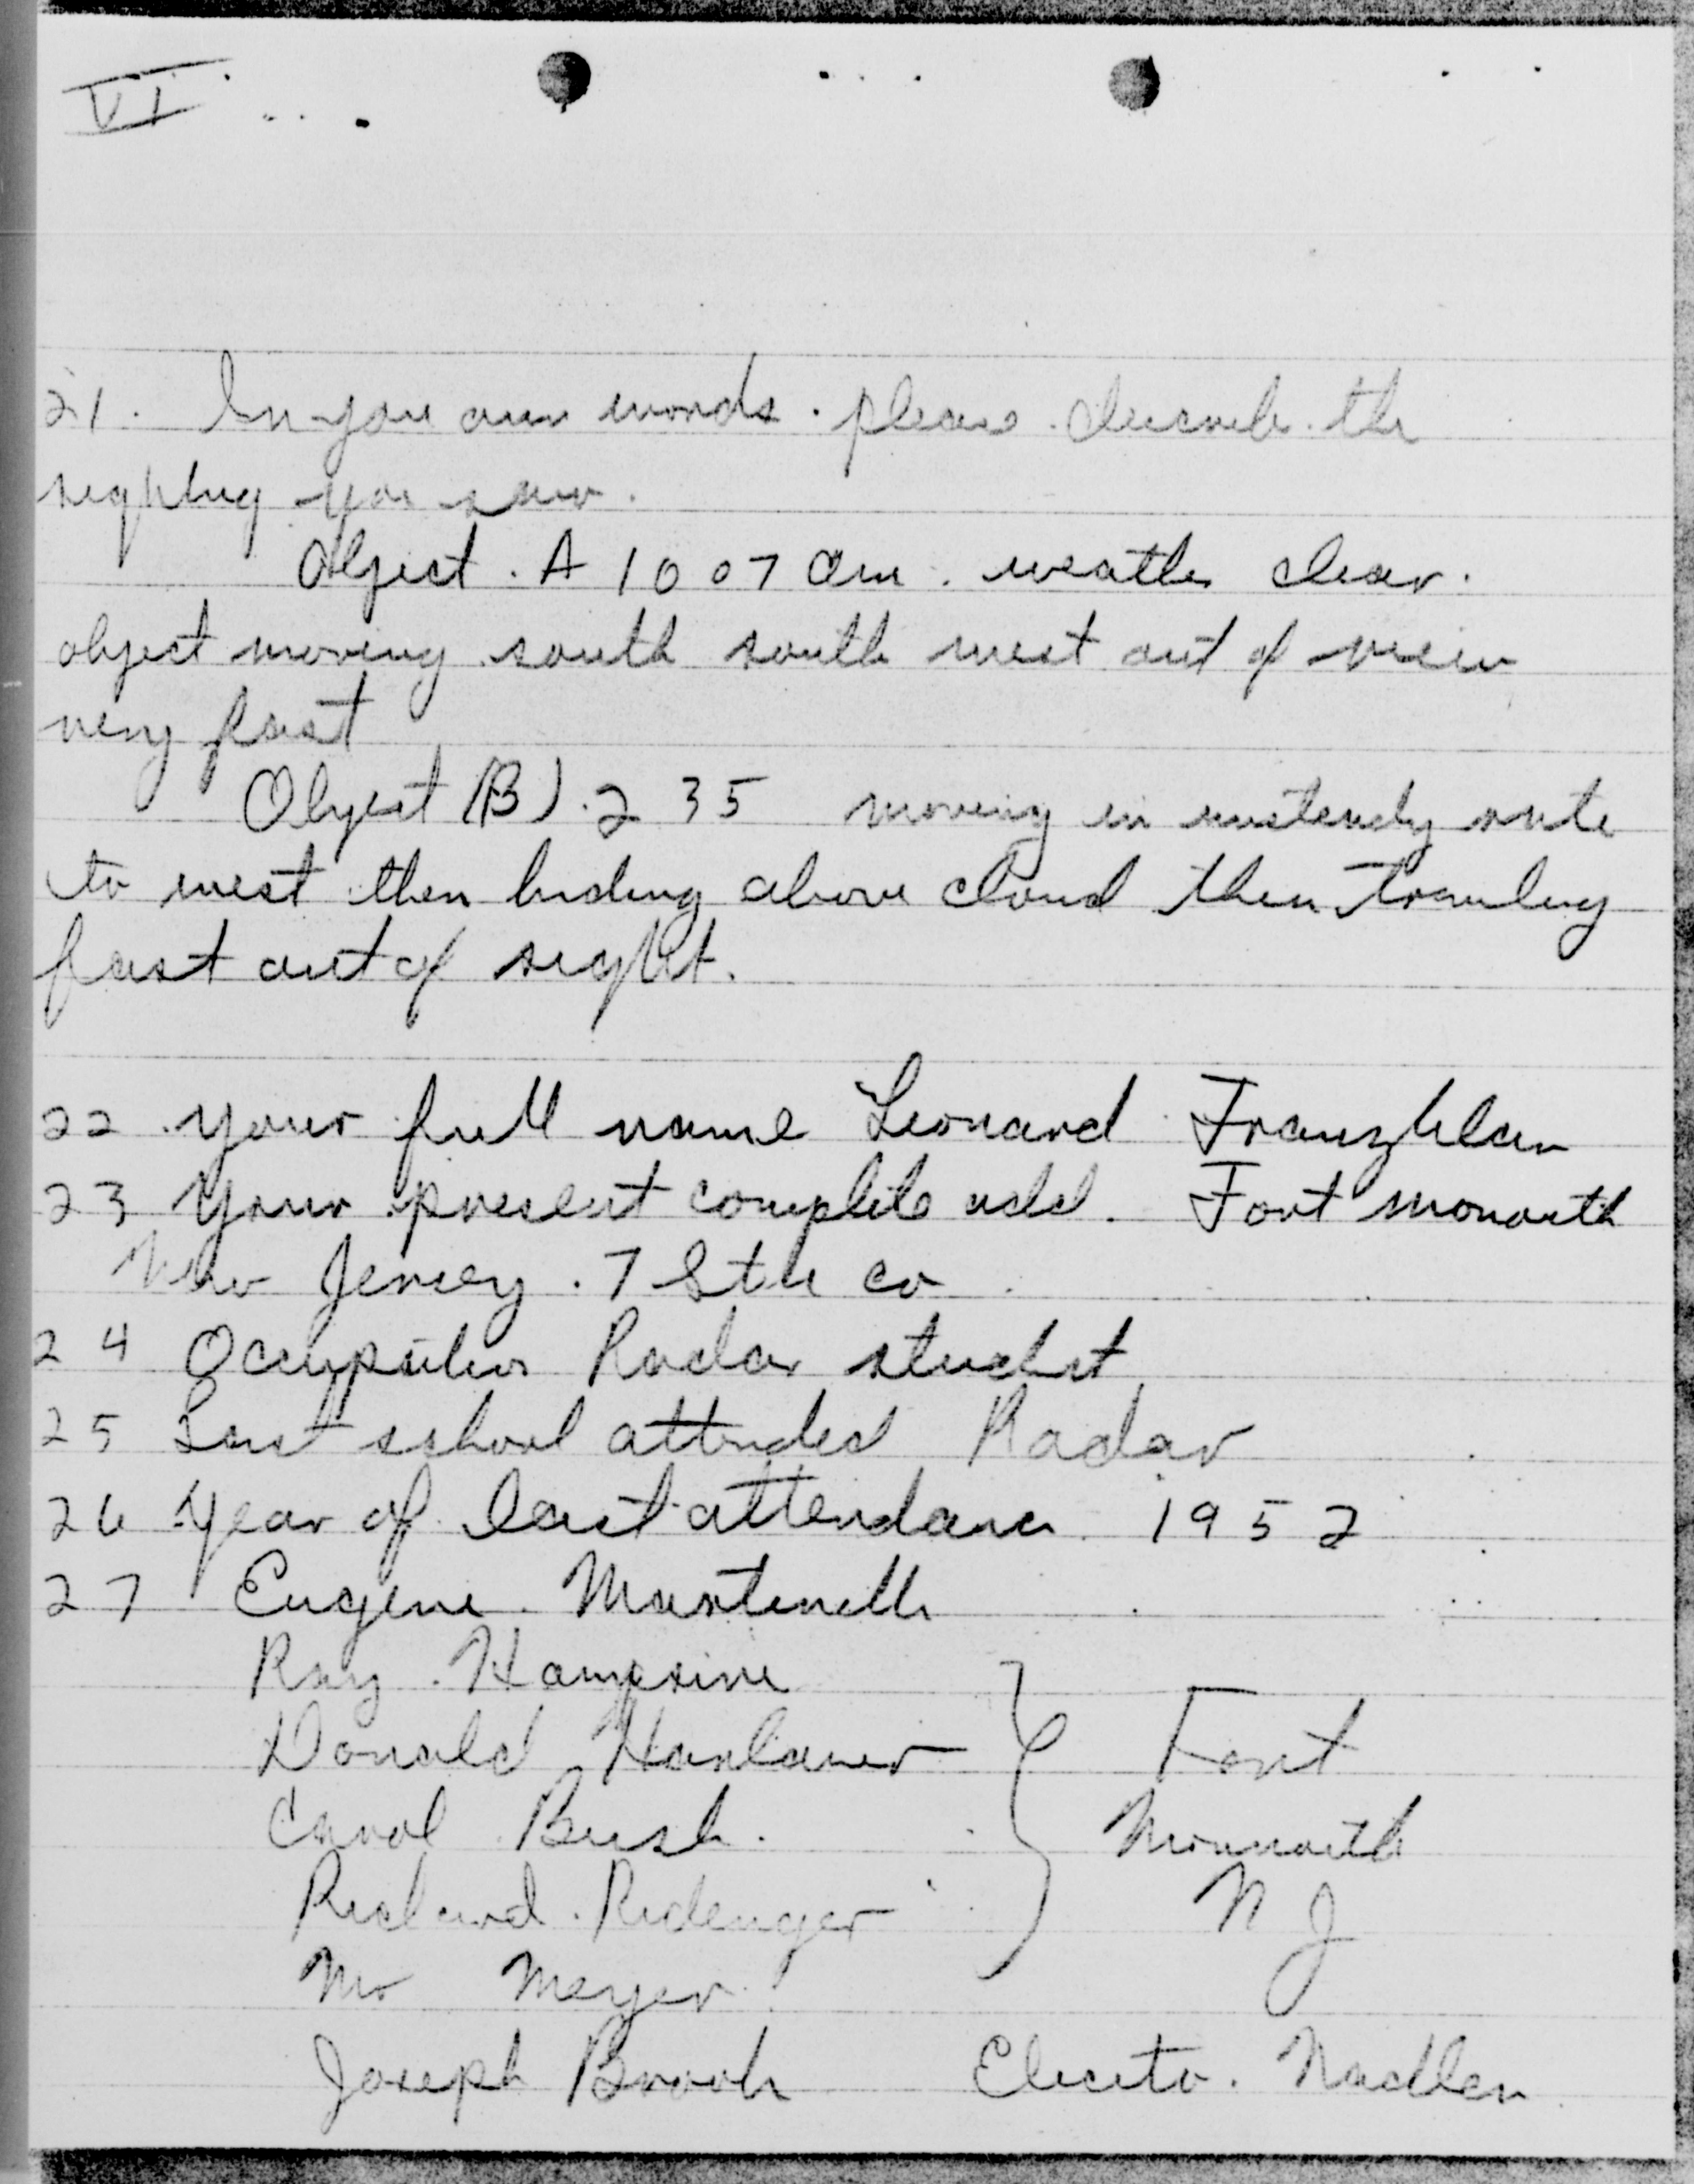 VI
21. In your own words. please describe the
sighting you saw.
Object. A 10 07 am. weather clear.
object moving south south west out of view
very fast
Object (B). 2 35 moving in unsteady rate
to west then hiding above cloud then traveling
fast out of sight.
22 your full name Leonard Franzblau
23 your present complete add. Fort Monmouth
New Jersey. 7 Stu co
24 Occupation Radar student
25 Last school attended Radar
26 year of last attendance 1952
27 Eugene Martinelli
Ray
Donald Fort
Carol Bush. Monmouth
Richard. Ridenger N J
Mr Meyer
Joseph